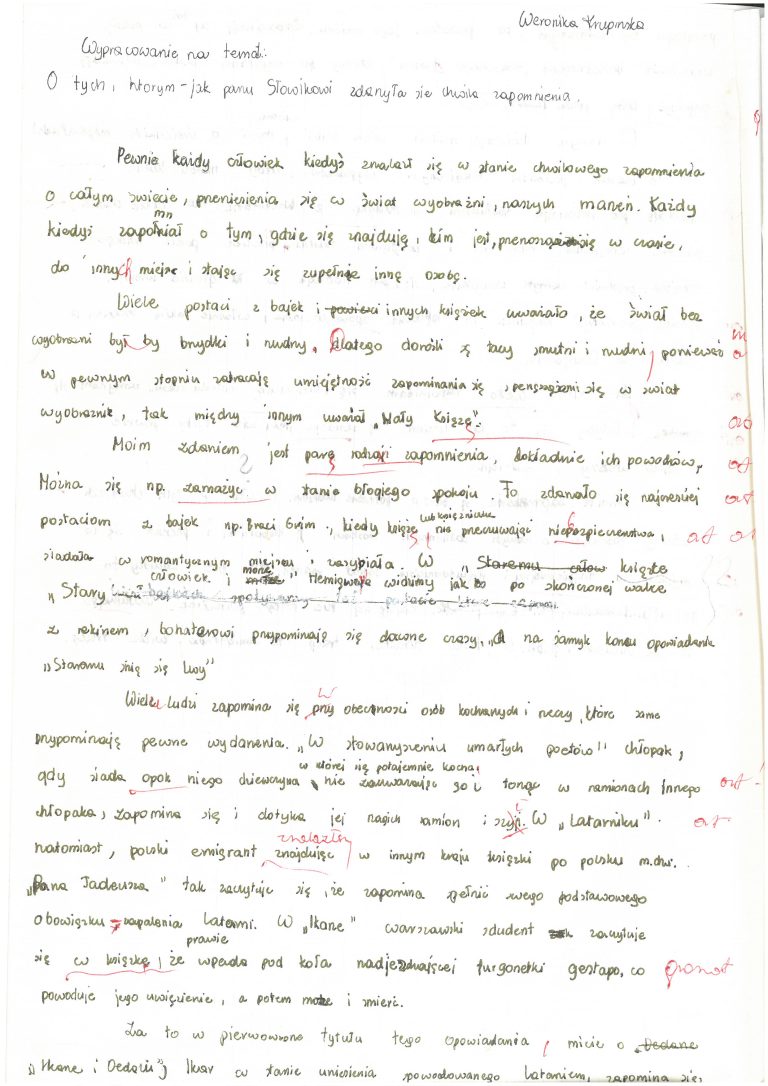 Weronika Krupinska
Wypracowanie na temat:
O tych, ktorym - jak panu Słowikowi zdarzyła sie chwila zapomnienia.
Pewnie każdy człowiek kiedyś znalazł się w stanie chwilowego zapomnienia
o całym świecie, przeniesienia się w świat wyobraźni, naszych marzeń. Każdy
mn
kiedyś zapomniał o tym, gdzie się znajduję, kim jest, przenosząc się w czasie,
do innych miejsc i stając się zupełnie inną osobą.
Wiele postaci z bajek i powieści innych książek uważało, że świat bez
wyobraźni był by brzydki i nudny. Dlatego dorośli są tacy smutni i nudni, ponieważ
w pewnym stopniu zatracają umiejętność zapominania się, się w świat
wyobraźnie, tak między innym uważał „Mały Książę".
ort
Moim zdaniem jest parę rodzaji zapomnienia, dokładnie ich powodków,
ort
Można się np. zamażyć w stanie błogiego spokoju. To zdarzało się najczęściej
ort
lub księżniczka
postaciom z bajek np. Braci Grim., kiedy książę nie przeczuwając niebezpieczeństwa,
ort ort
siadała w romantycznym miejscu i zasypiała. W „Staremu człow książce
człowiek i morze" Hemigwaya widzimy jak to po skończonej walce
„Stary
z rekinem, bohaterowi przypominają się dawne czasy, „A na samyk koncu opowiadania
„Staremu śnią się lwy"
W
Wiele ludzi zapomina się przy obecności osób kochanych i rzeczy, które same
przypominają pewne wydarzenia. „W stowarzyszeniu umarłych poetów" chłopak,
w której się potajemnie kocha,
gdy siada opok niego dziewczyna nie zauważając go i tonąc w ramionach innego
ort
chłopaka, zapomina się i dotyka jej nagich ramion i szyji. W „Latarniku"
ort
znalazłszy
natomiast, polski emigrant znajdując w innym kraju książki po polsku m.dw.
„Pana Tadeusza" tak zaczytuje się, że zapomina spełnić swego podstawowego
obowiązku - zapalenia latarni. W „Ikarze" warszawski student zaczytuje
prawie
się w książkę, że wpada pod koła nadjeżdnającej furgonetki gestapo, co
gramat
powoduje jego uwięzienie, a potem może i śmierć.
Za to w pierwowzorze tytułu tego opowiadania, micie o Dedane
„Ikarze i Dedalu", Ikar w stanie uniesienia spowodowanego lataniem, zapomina się,